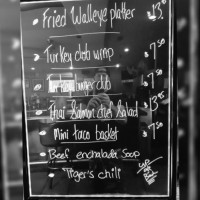 • Fried Walleye platter $13.
• Turkey club wrap $7.50
• burger club $7.50
• Thai Salmon chef Salad $13.95
• Mini taco basket $7.50
• Beef enchalada Soup
• Tiger's chili